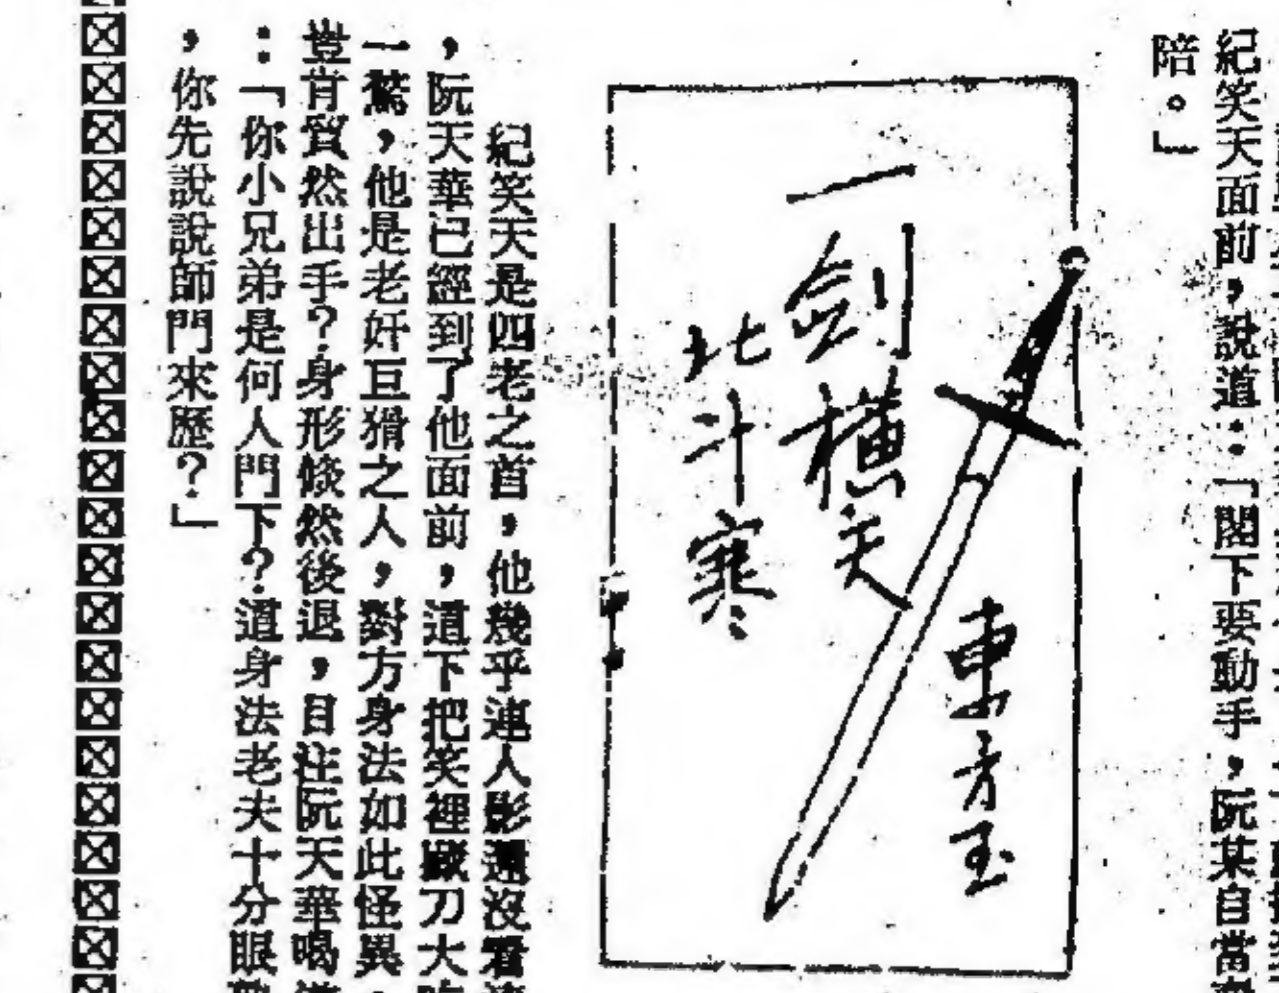 紀笑天面前，說道：「閣下要動手，阮某自當
陪。」
一劍橫天
北斗寒
東方玉
紀笑天是四老之首，他幾乎連人影還沒看
，阮天華已經到了他面前，這下把笑裡藏刀大
一驚，他是老奸巨猾之人，對方身法如此怪異，
豈肯貿然出手？身形倏然後退，目注阮天華喝
：「你小兄弟是何人門下？這身法老夫十分眼
，你先說說師門來歷？」